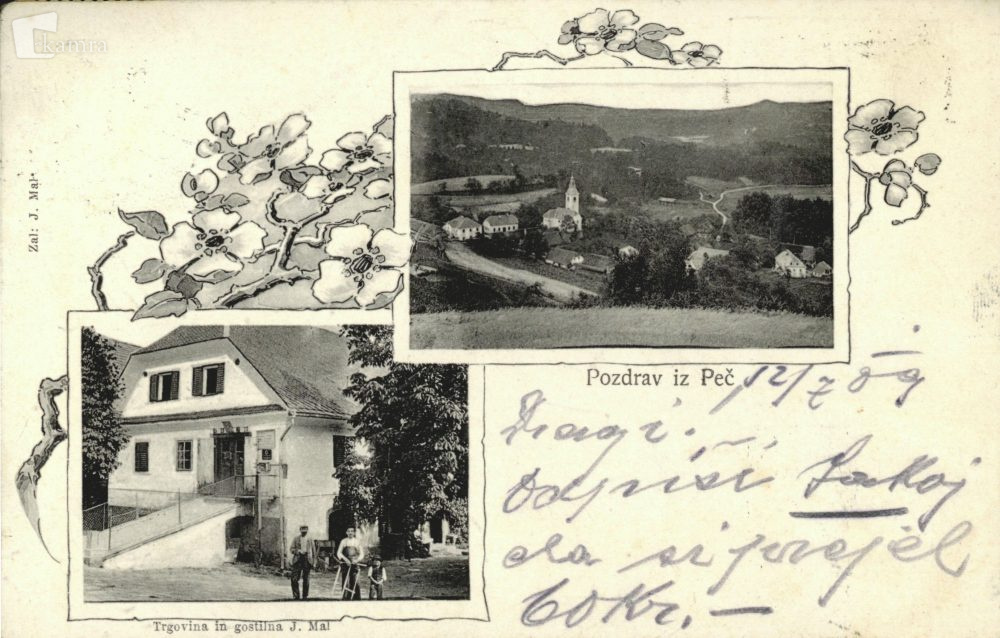 kamra
Zal: J. Mal
Pozdrav iz Peč
12/7 09
Dragi.
odpiši takoj
da si prejel
60Kr. —
Trgovina in gostilna J. Mal